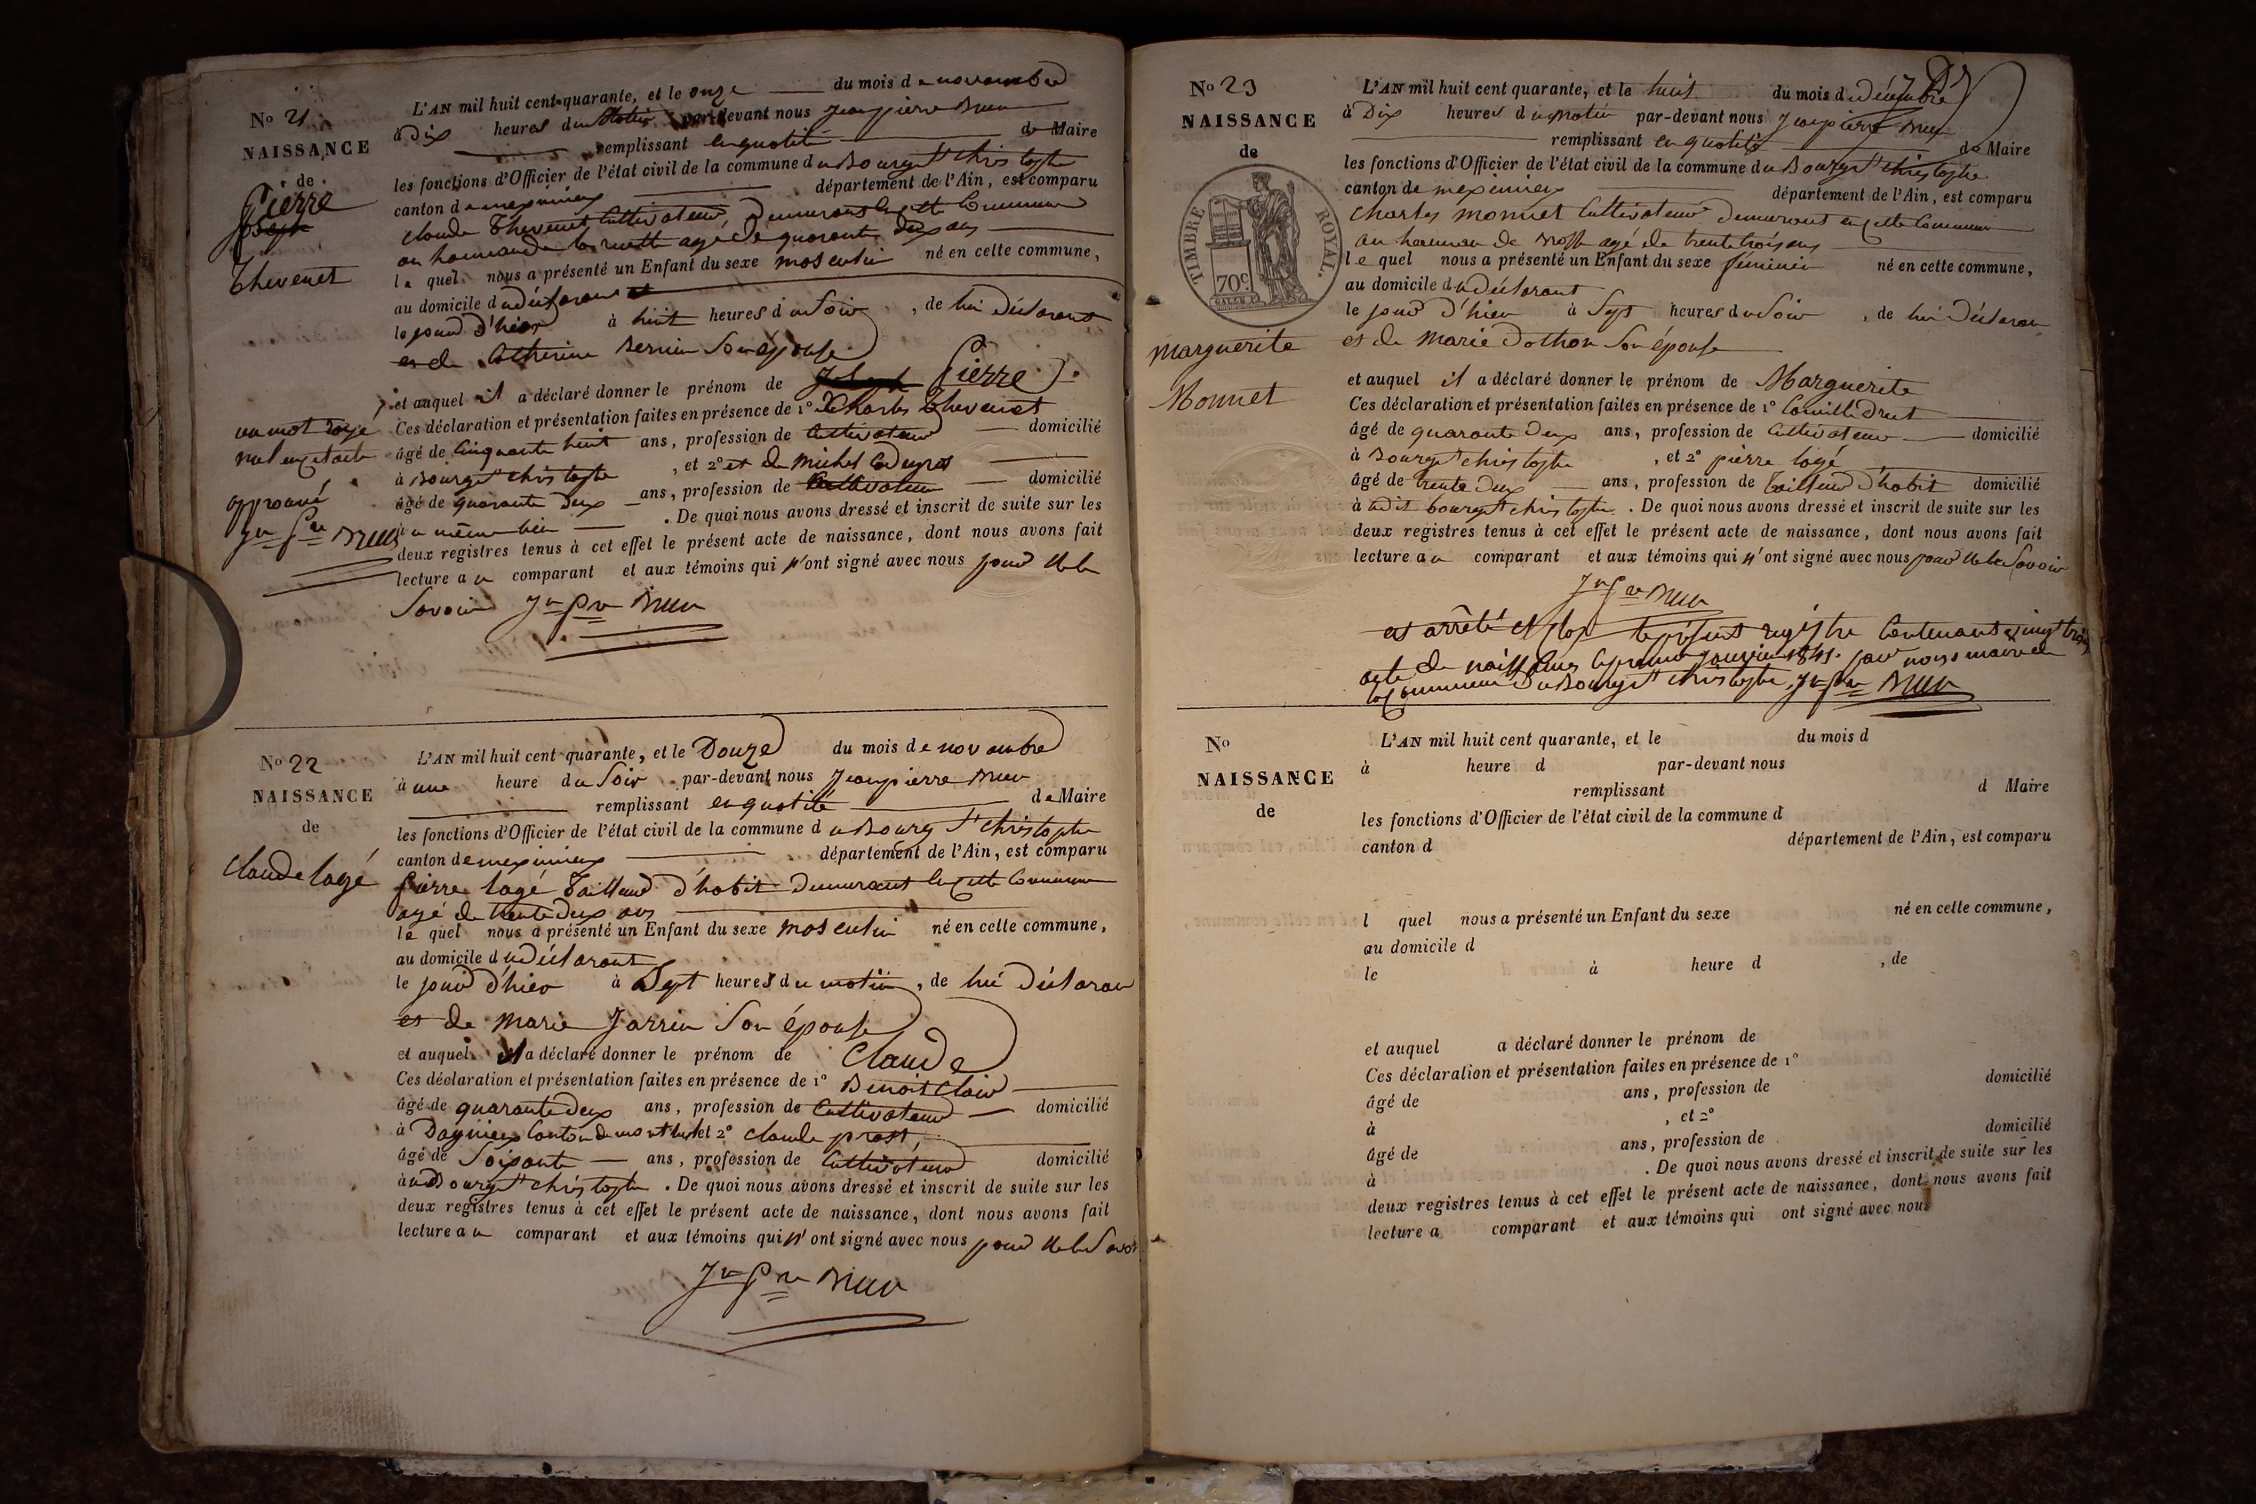 No 21
NAISSANCE
de
Pierre
Joseph
Thevenet
L'AN mil huit cent quarante, et le onze du mois de novembre
à Dix heures du Matin par-devant nous Jean pierre Brun
remplissant en qualité de Maire
les fonctions d'Officier de l'état civil de la commune du Bourg St christophe
canton de meximieux département de l'Ain, est comparu
claude Thevenet Cultivateur, Demeurant en cette Commune
au hameau de agé de quarante deux ans
le quel nous a présenté un Enfant du sexe masculin né en cette commune,
au domicile du déclarant
le jour d'hier à huit heures du Soir, de lui Déclarant
et de Catherine Bernin Son épouse
et auquel il a déclaré donner le prénom de Joseph Pierre
Ces déclaration et présentation faites en présence de 1° Charles Thevenet
âgé de Cinquante huit ans, profession de Cultivateur domicilié
à Bourg St christophe, et 2° et de Michel
âgé de quarante deux ans, profession de Cultivateur domicilié
au même lieu. De quoi nous avons dressé et inscrit de suite sur les
deux registres tenus à cet effet le présent acte de naissance, dont nous avons fait
lecture au comparant et aux témoins qui n'ont signé avec nous pour ne le
Savoir Jn Pre Brun
un mot rayé
nul en cet acte
approuvé
Jn Pre Brun
No 22
NAISSANCE
de
claude logé
L'AN mil huit cent quarante, et le Douze du mois de novembre
à une heure du Soir par-devant nous Jean pierre Brun
remplissant en qualité de Maire
les fonctions d'Officier de l'état civil de la commune du Bourg St christophe
canton de meximieux département de l'Ain, est comparu
pierre logé Tailleur d'habit Demeurant en cette Commune
agé de trente deux ans
le quel nous a présenté un Enfant du sexe masculin né en cette commune,
au domicile du déclarant
le jour d'hier à Sept heures du matin, de lui Déclarant
et de Marie Jarrin Son épouse
et auquel il a déclaré donner le prénom de Claude
Ces déclaration et présentation faites en présence de 1° Benoit Clair
âgé de quarante deux ans, profession de Cultivateur domicilié
à Dagnieux Canton de montluel et 2° claude prost,
âgé de Soixante ans, profession de Cultivateur domicilié
au Bourg St christophe. De quoi nous avons dressé et inscrit de suite sur les
deux registres tenus à cet effet le présent acte de naissance, dont nous avons fait
lecture au comparant et aux témoins qui n'ont signé avec nous pour ne le Savoir
Jn Pre Brun
No 23
NAISSANCE
de
TIMBRE ROYAL.
70c
marguerite
Monnet
L'AN mil huit cent quarante, et le huit du mois de Décembre
à Dix heures du matin par-devant nous Jean pierre Brun
remplissant en qualité de Maire
les fonctions d'Officier de l'état civil de la commune du Bourg St christophe
canton de meximieux département de l'Ain, est comparu
charles monnet Cultivateur Demeurant en cette Commune
au hameau de agé de trente trois ans
le quel nous a présenté un Enfant du sexe féminin né en cette commune,
au domicile du déclarant
le jour d'hier à Sept heures du Soir, de lui Déclarant
et de Marie Dothon Son épouse
et auquel il a déclaré donner le prénom de Marguerite
Ces déclaration et présentation faites en présence de 1° Camille Druet
âgé de quarante Deux ans, profession de Cultivateur domicilié
à Bourg St christophe, et 2° pierre logé
âgé de trente Deux ans, profession de Tailleur d'habit domicilié
à udit bourg St christophe. De quoi nous avons dressé et inscrit de suite sur les
deux registres tenus à cet effet le présent acte de naissance, dont nous avons fait
lecture au comparant et aux témoins qui n'ont signé avec nous pour ne le Savoir
Jn Pre Brun
et arrêté et clos le présent registre Contenant vingt trois
acte de naissance le premier janvier 1841. par nous maire de
la Commune du Bourg St christophe Jn Pre Brun
No
NAISSANCE
de
L'AN mil huit cent quarante, et le du mois d
à heure d par-devant nous
remplissant d Maire
les fonctions d'Officier de l'état civil de la commune d
canton d département de l'Ain, est comparu
l quel nous a présenté un Enfant du sexe né en cette commune,
au domicile d
le à heure d , de
et auquel a déclaré donner le prénom de
Ces déclaration et présentation faites en présence de 1°
âgé de ans, profession de domicilié
à , et 2°
âgé de ans, profession de domicilié
à . De quoi nous avons dressé et inscrit de suite sur les
deux registres tenus à cet effet le présent acte de naissance, dont nous avons fait
lecture a comparant et aux témoins qui ont signé avec nous